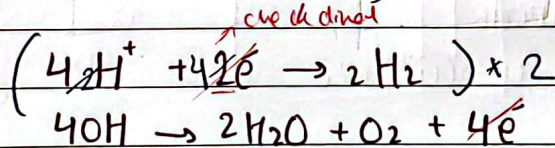 check dinat
(4 2H⁺ + 4 2e → 2 H2) × 2
4OH → 2H2O + O2 + 4e